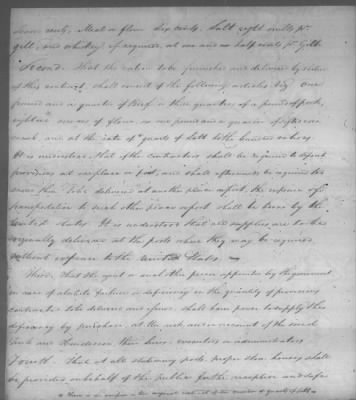 seven cents, Meal or flour six cents, Salt eight mills pr
gill, and whiskey if required, at one and a half cents pr Gill.
Second. That the ration to be furnished and delivered by virtue
of this contract, shall consist of the following articles Viz. One
pound and a quarter of Beef or three quarters of a pound of pork,
eighteen ounces of flour, or one pound and a quarter of sifted corn
meal, and at the rate of quarts of Salt to the hundred rations.
It is understood, that if the contractors shall be required to deposit
provisions at one place or Post, and shall afterwards be required to
move them to be delivered at another place or post, the expense of
transportation to such other place or post shall be borne by the
United States. It is understood that all supplies are to be
originally delivered at the posts where they may be required
without expense to the United States.
Third. That the agent or such other person appointed by the government
in case of absolute failure or deficiency in the quantity of provisions
contracted to be delivered and issued, shall have power to supply the
deficiency by purchase, at the risk and on account of the said
and Henderson their heirs, executors or administrators
Fourth. That at all stationary posts, proper store houses shall
be provided, on behalf of the public for the reception and safe